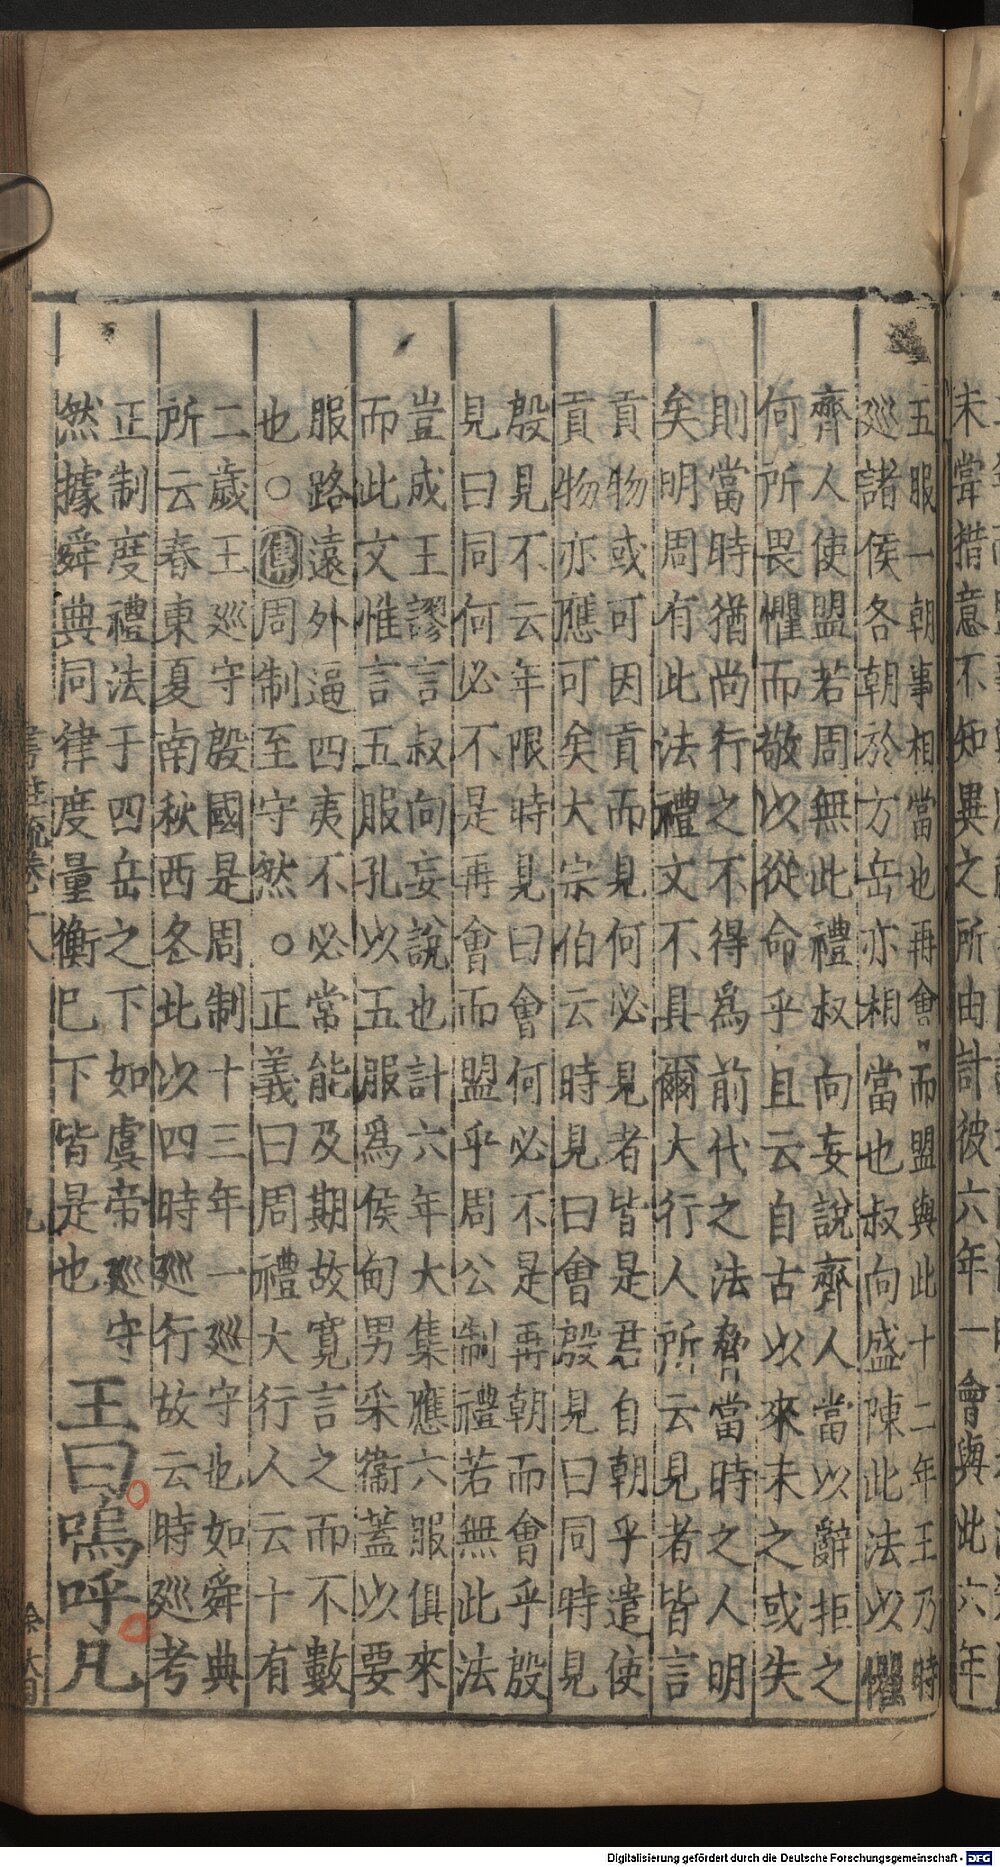 未嘗措意不知異之所由計彼六年一會與此六年
五服一朝事相當也再會而盟與此十二年王乃時
廵諸侯各朝於方岳亦相當也叔向盛陳此法以懼
齊人使盟若周無此禮叔向妄說齊人當以辭拒之
何所畏懼而敬以從命乎且云自古以來未之或失
則當時猶尚行之不得爲前代之法胷當時之人明
矣明周有此法禮文不具爾大行人所云見者皆言
貢物或可因貢而見何必見者皆是君自朝乎遣使
貢物亦應可矣大宗伯云時見曰會殷見曰同時見
殷見不云年限時見曰會何必不是再朝而會乎殷
見曰同何必不是再會而盟乎周公制禮若無此法
豈成王謬言叔向妄說也計六年大集應六服俱來
而此文惟言五服孔以五服爲侯甸男采衞蓋以要
服路遠外逼四夷不必常能及期故寛言之而不數
也○傳周制至守然○正義曰周禮大行人云十有
二歲王廵守殷國是周制十三年一廵守也如舜典
所云春東夏南秋西冬此以四時廵行故云時廵考
正制度禮法于四岳之下如虞帝廵守
然據舜典同律度量衡已下皆是也
王曰嗚呼凡
書註疏卷十八
九
Digitalisierung gefördert durch die Deutsche Forschungsgemeinschaft - DFG